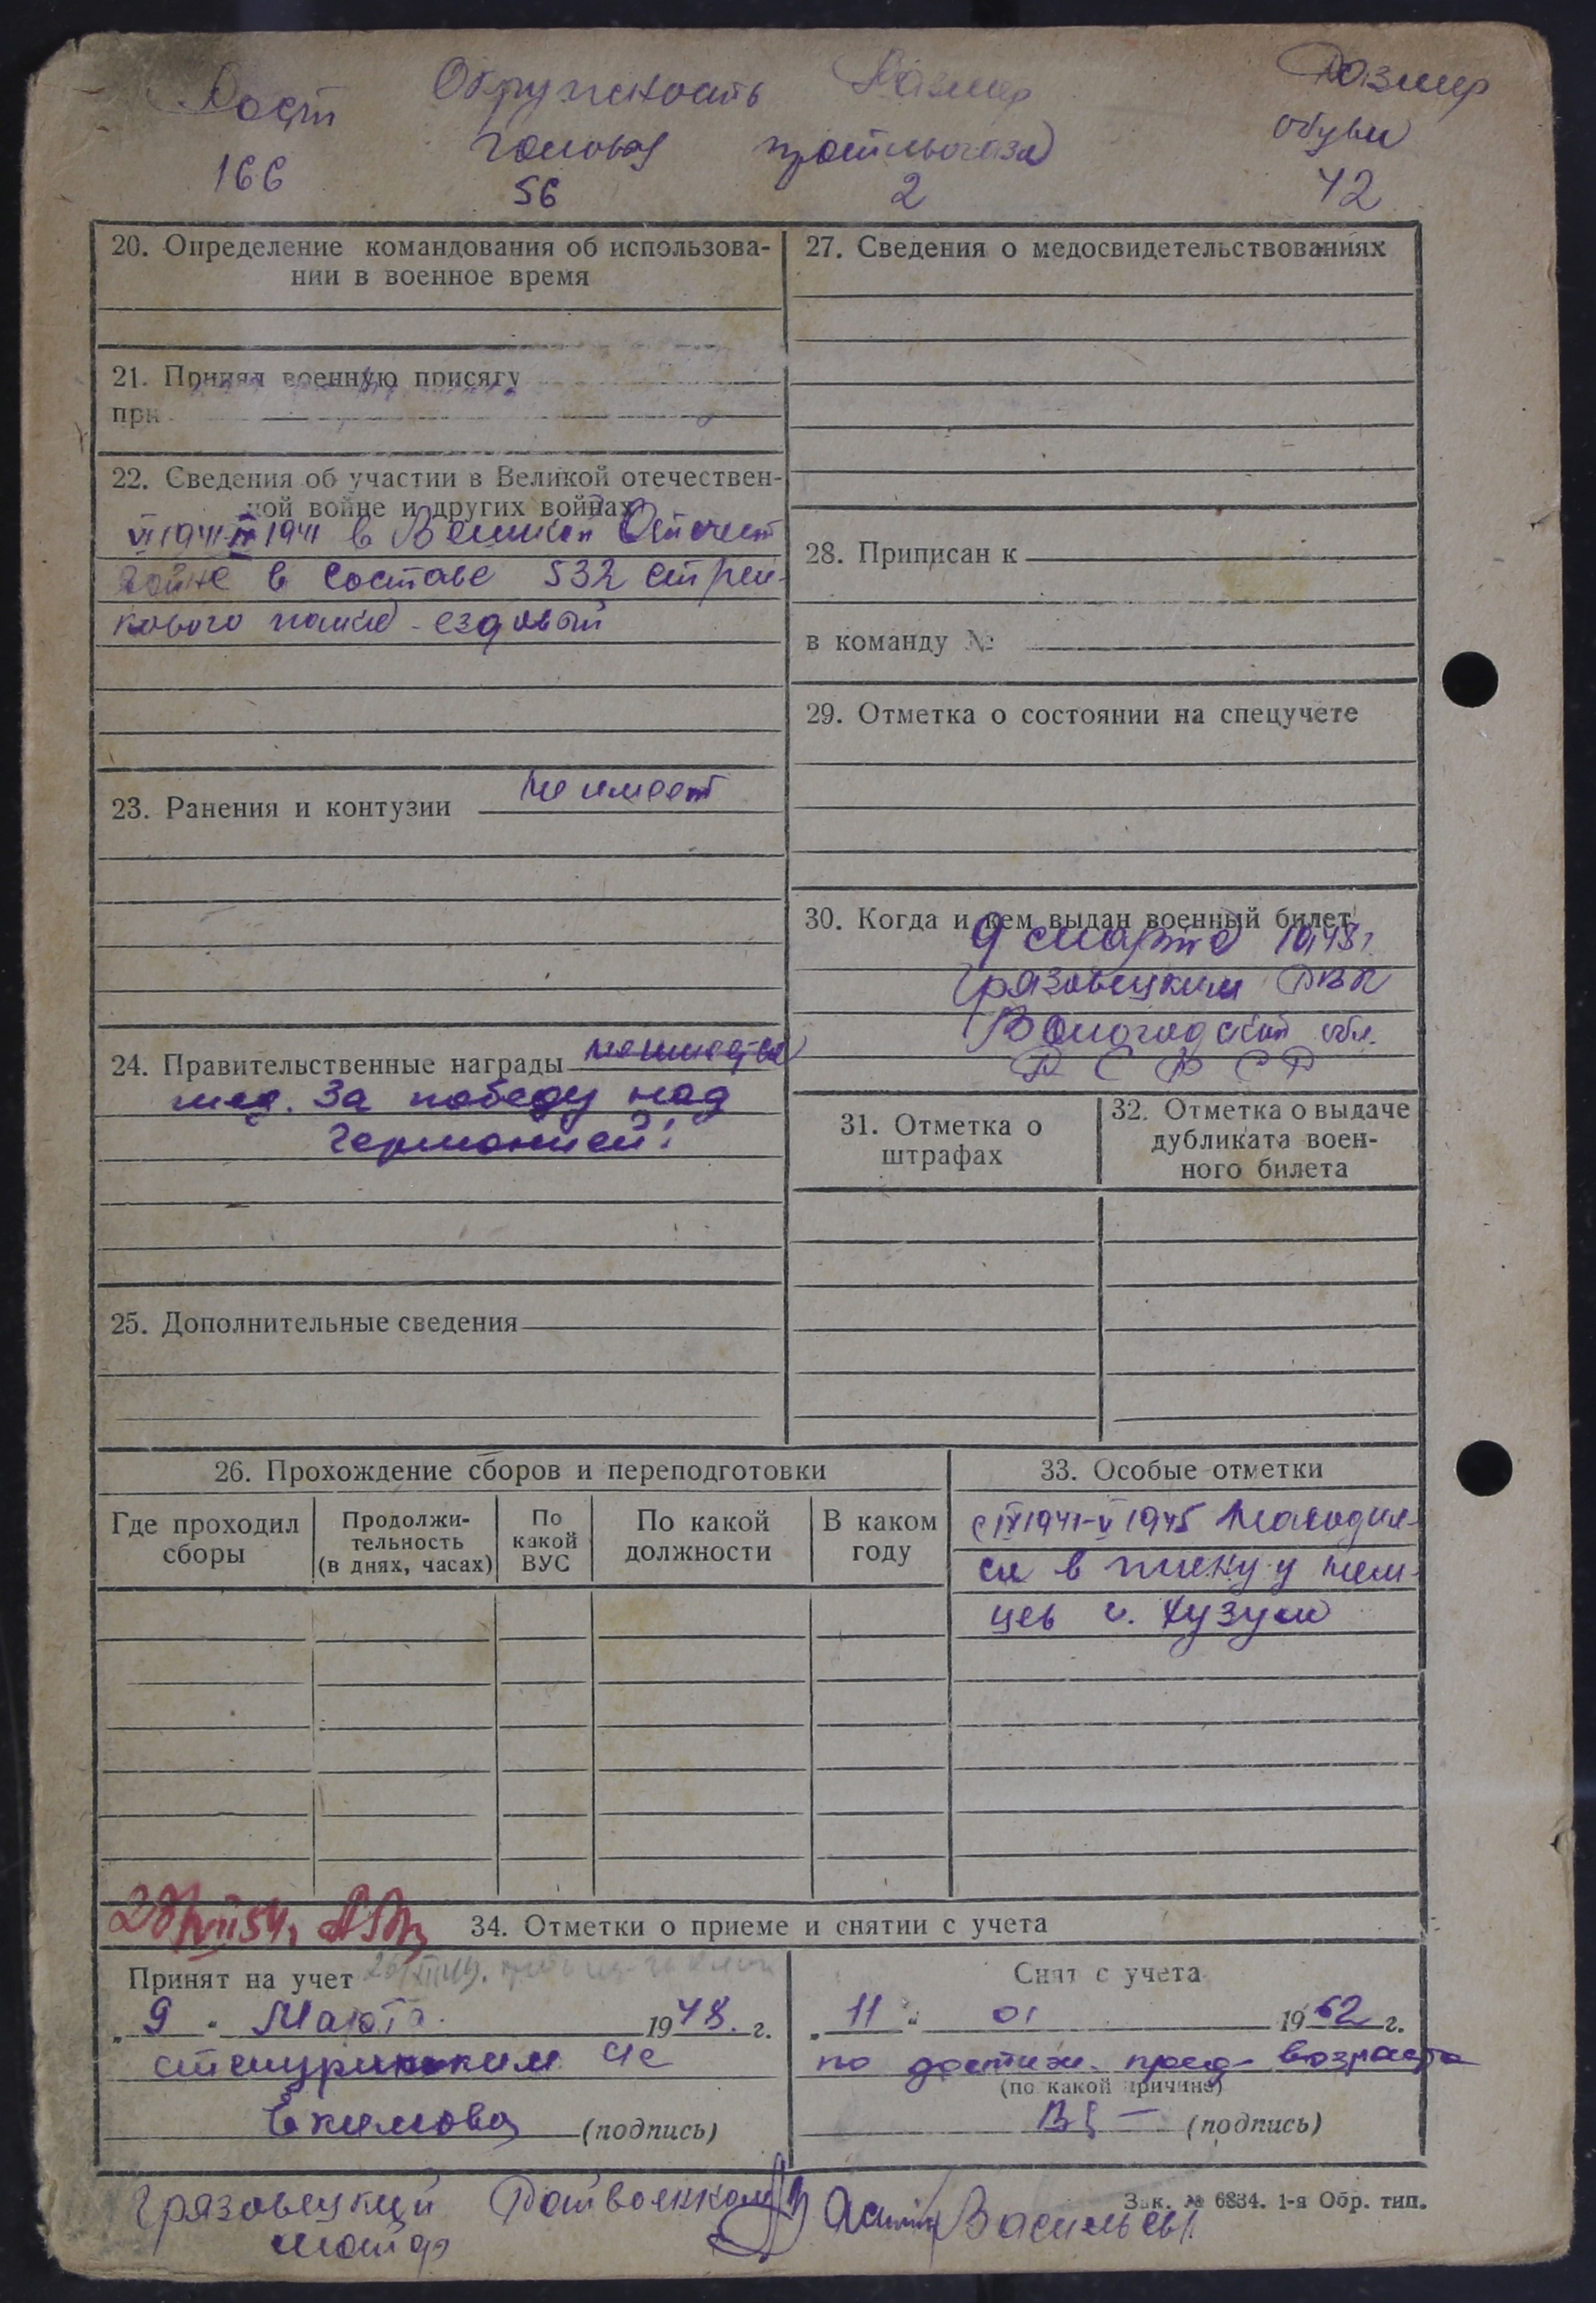 Рост Окружность Размер Размер
головы противогаза обуви
166 56 2 42
20. Определение командования об использова-
нии в военное время
21. Принял военную присягу
при
22. Сведения об участии в Великой отечествен-
ной войне и других войнах
VI 1941-IX 1941 в Великой Отечест
войне в составе 532 стрел-
кового полка - ездовый
23. Ранения и контузии не имеет
24. Правительственные награды
мед. За победу над
Германией:
25. Дополнительные сведения
26. Прохождение сборов и переподготовки
Где проходил сборы
Продолжи-
тельность
(в днях, часах)
По
какой
ВУС
По какой
должности
В каком
году
27. Сведения о медосвидетельствованиях
28. Приписан к
в команду №
29. Отметка о состоянии на спецучете
30. Когда и кем выдан военный билет
9 марта 1948г.
Грязовецким РВК
Вологодской обл.
31. Отметка о
штрафах
32. Отметка о выдаче
дубликата воен-
ного билета
33. Особые отметки
с IX 1941-V 1945 находил-
ся в плену у нем-
цев г. Хузум
34. Отметки о приеме и снятии с учета
Принят на учет
„ 9 “ Марта 1948. г.
Екимова (подпись)
Снят с учета
„ 11 “ 01 1962 г.
по достиж. пред. возраста
(по какой причине)
(подпись)
Грязовецкий Райвоенком
майор Васильев
Зак. № 6834. 1-я Обр. тип.